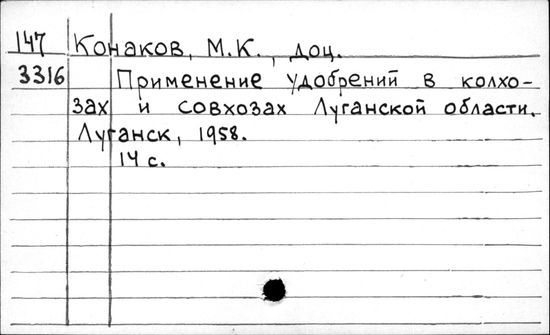 147 Конаков, М.К., доц.
3316 Применение удобрений в колхо-
зах и совхозах Луганской области.
Луганск, 1958.
14 с.